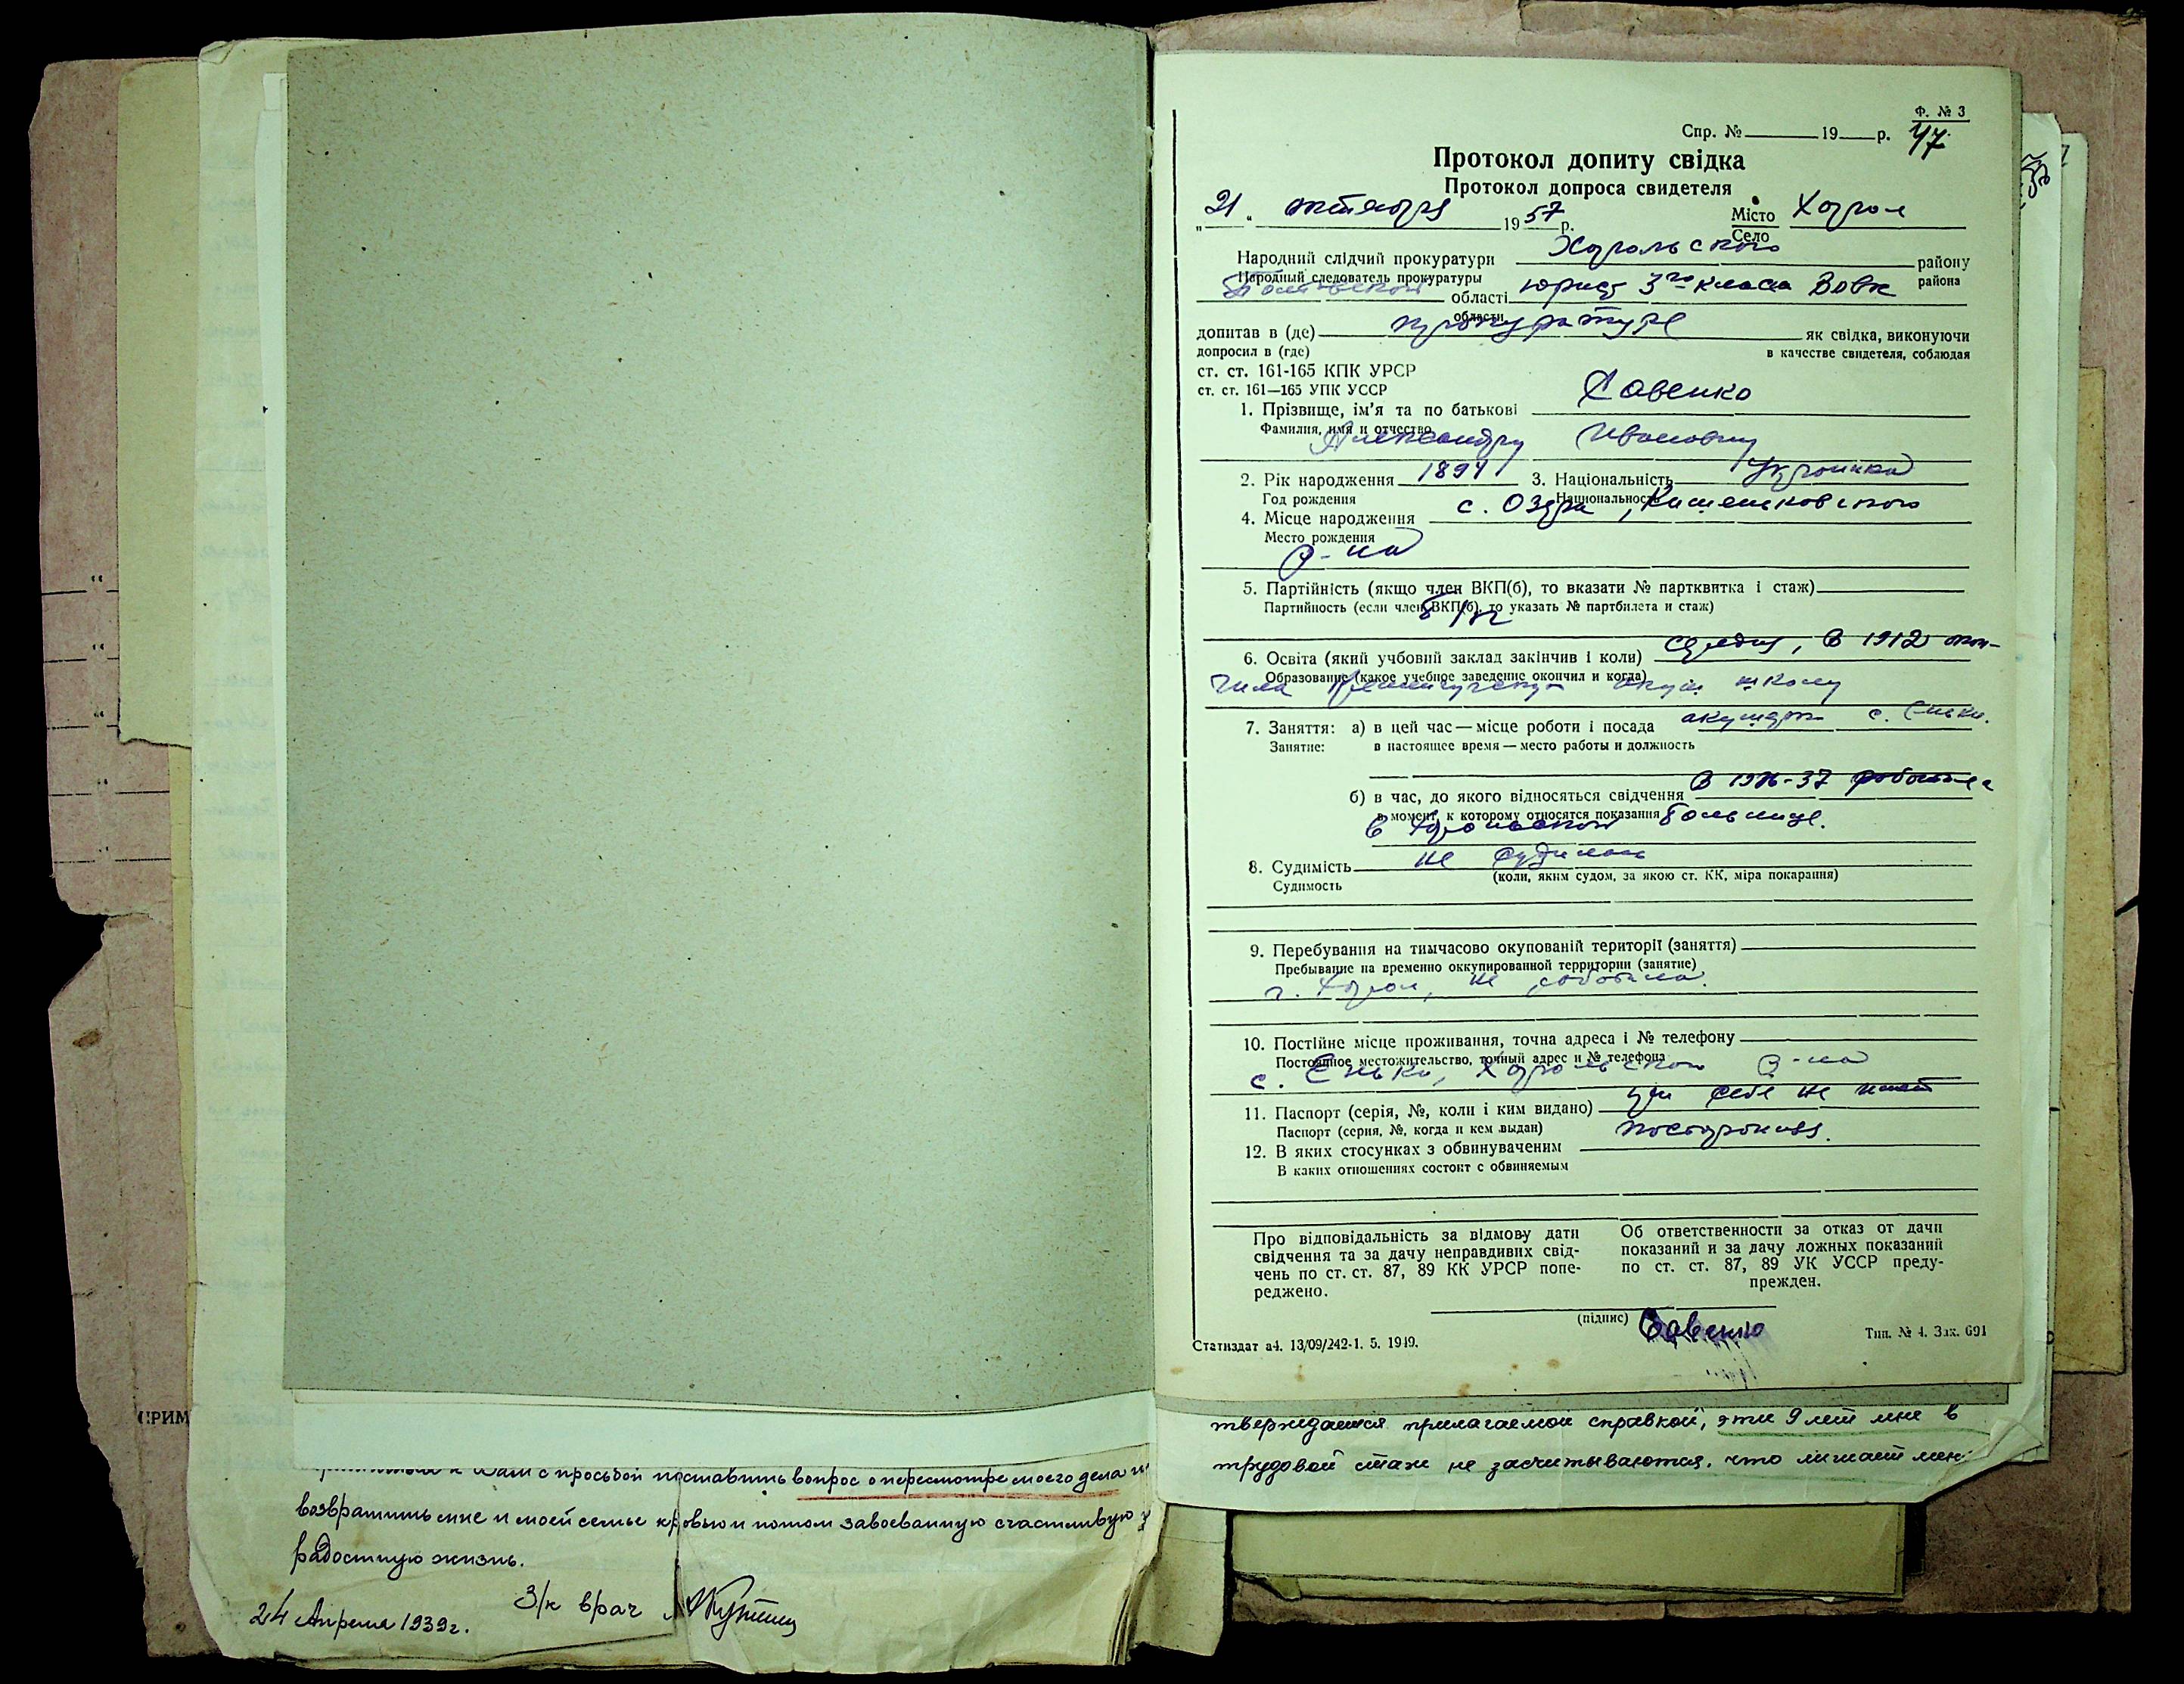 СПРИМ
вопрос о пересмотре моего дела и
возвратить мне и моей семье кровью и потом завоеванную счастливую и
радостную жизнь.
24 Апреля 1939 г. З/к врач
Ф. № 3
Спр. № 19 р. 47
Протокол допиту свідка
Протокол допроса свидетеля
„21“ октября 1957 р. Місто Хорол
Село
Народний слідчий прокуратури Хорольского району
Народный следователь прокуратуры района
Полтавской області юрист 3го класса Вовк
области
допитав в (де) прокуратуре як свідка, виконуючи
допросил в (где) в качестве свидетеля, соблюдая
ст. ст. 161-165 КПК УРСР
ст. ст. 161—165 УПК УССР
1. Прізвище, ім'я та по батькові Савенко
Фамилия, имя и отчество
Александру Ивановну
2. Рік народження 1894 3. Національність украинка
Год рождения Национальность
4. Місце народження с. Озера, Кишеньковского
Место рождения
р-на
5. Партійність (якщо член ВКП(б), то вказати № партквитка і стаж)
Партийность (если член ВКП(б), то указать № партбилета и стаж)
б/п
6. Освіта (який учбовий заклад закінчив і коли) средня, в 1912 окон-
Образование (какое учебное заведение окончил и когда)
чила Кременчугскую акуш школу
7. Заняття: а) в цей час — місце роботи і посада акушерка с. Еньки.
Занятие: в настоящее время — место работы и должность
б) в час, до якого відносяться свідчення В 1936-37 работала
в момент, к которому относятся показания
в Хорольской больнице.
8. Судимість не судилась
Судимость (коли, яким судом, за якою ст. КК, міра покарання)
9. Перебування на тимчасово окупованій території (заняття)
Пребывание на временно оккупированной территории (занятие)
г. Хорол, не работала.
10. Постійне місце проживання, точна адреса і № телефону
Постоянное местожительство, точный адрес и № телефона
с. Еньки, Хорольского р-на
11. Паспорт (серія, №, коли і ким видано) при себе не имеет
Паспорт (серия, №, когда и кем выдан)
12. В яких стосунках з обвинуваченим посторонняя.
В каких отношениях состоит с обвиняемым
Про відповідальність за відмову дати
свідчення та за дачу неправдивих свід-
чень по ст. ст. 87, 89 КК УРСР попе-
реджено.
Об ответственности за отказ от дачи
показаний и за дачу ложных показаний
по ст. ст. 87, 89 УК УССР преду-
прежден.
(підпис) Савенко
Статиздат а4. 13/09/242-1. 5. 1949. Тип. № 4. Зак. 691
тверждается прилагаемой справкой, эти 9 лет мне в
трудовой стаж не засчитываются, что лишает меня